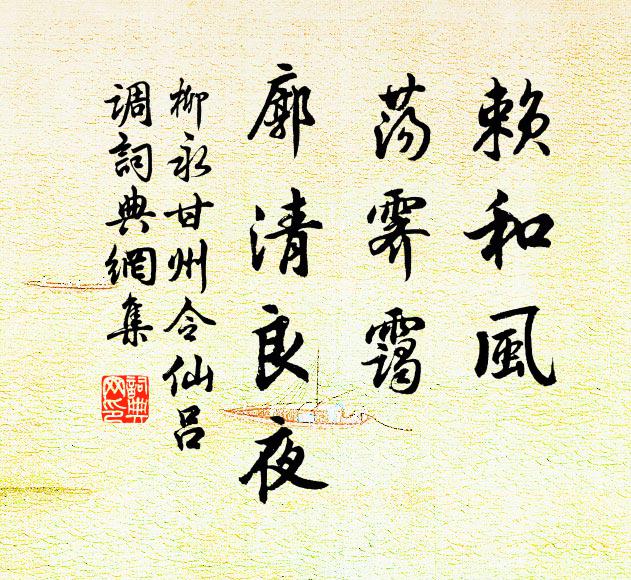 賴和風
蕩霽靄
廓清良夜
柳永甘州令仙呂
调詞典網集
詞典网印